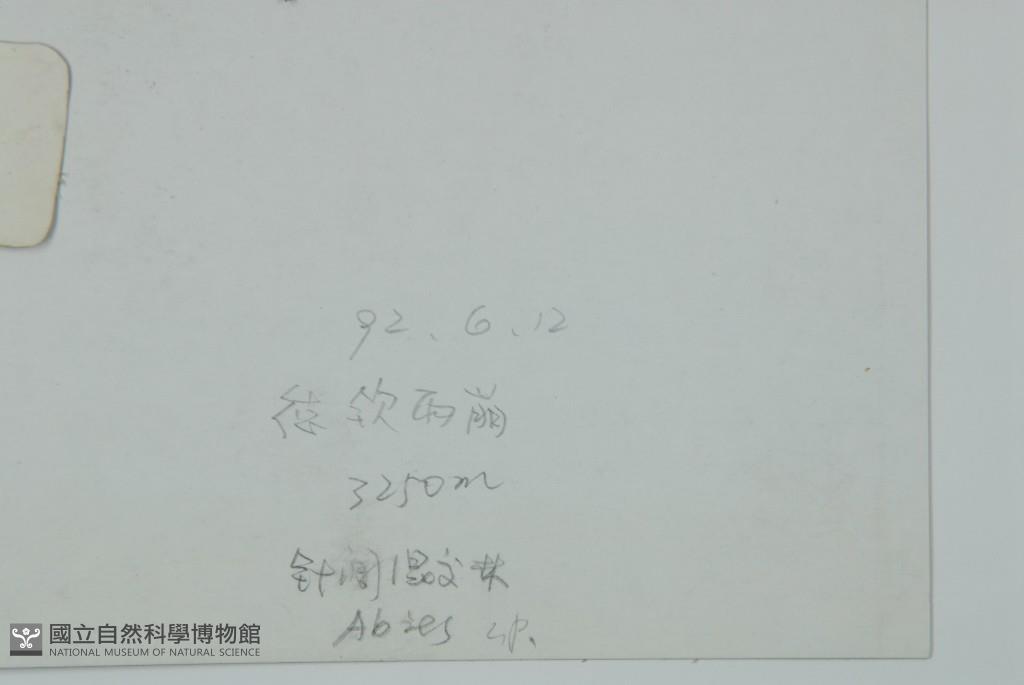 92.6.12
德钦雨崩
3250m
针阔混交林
Abies sp.
國立自然科學博物館
NATIONAL MUSEUM OF NATURAL SCIENCE